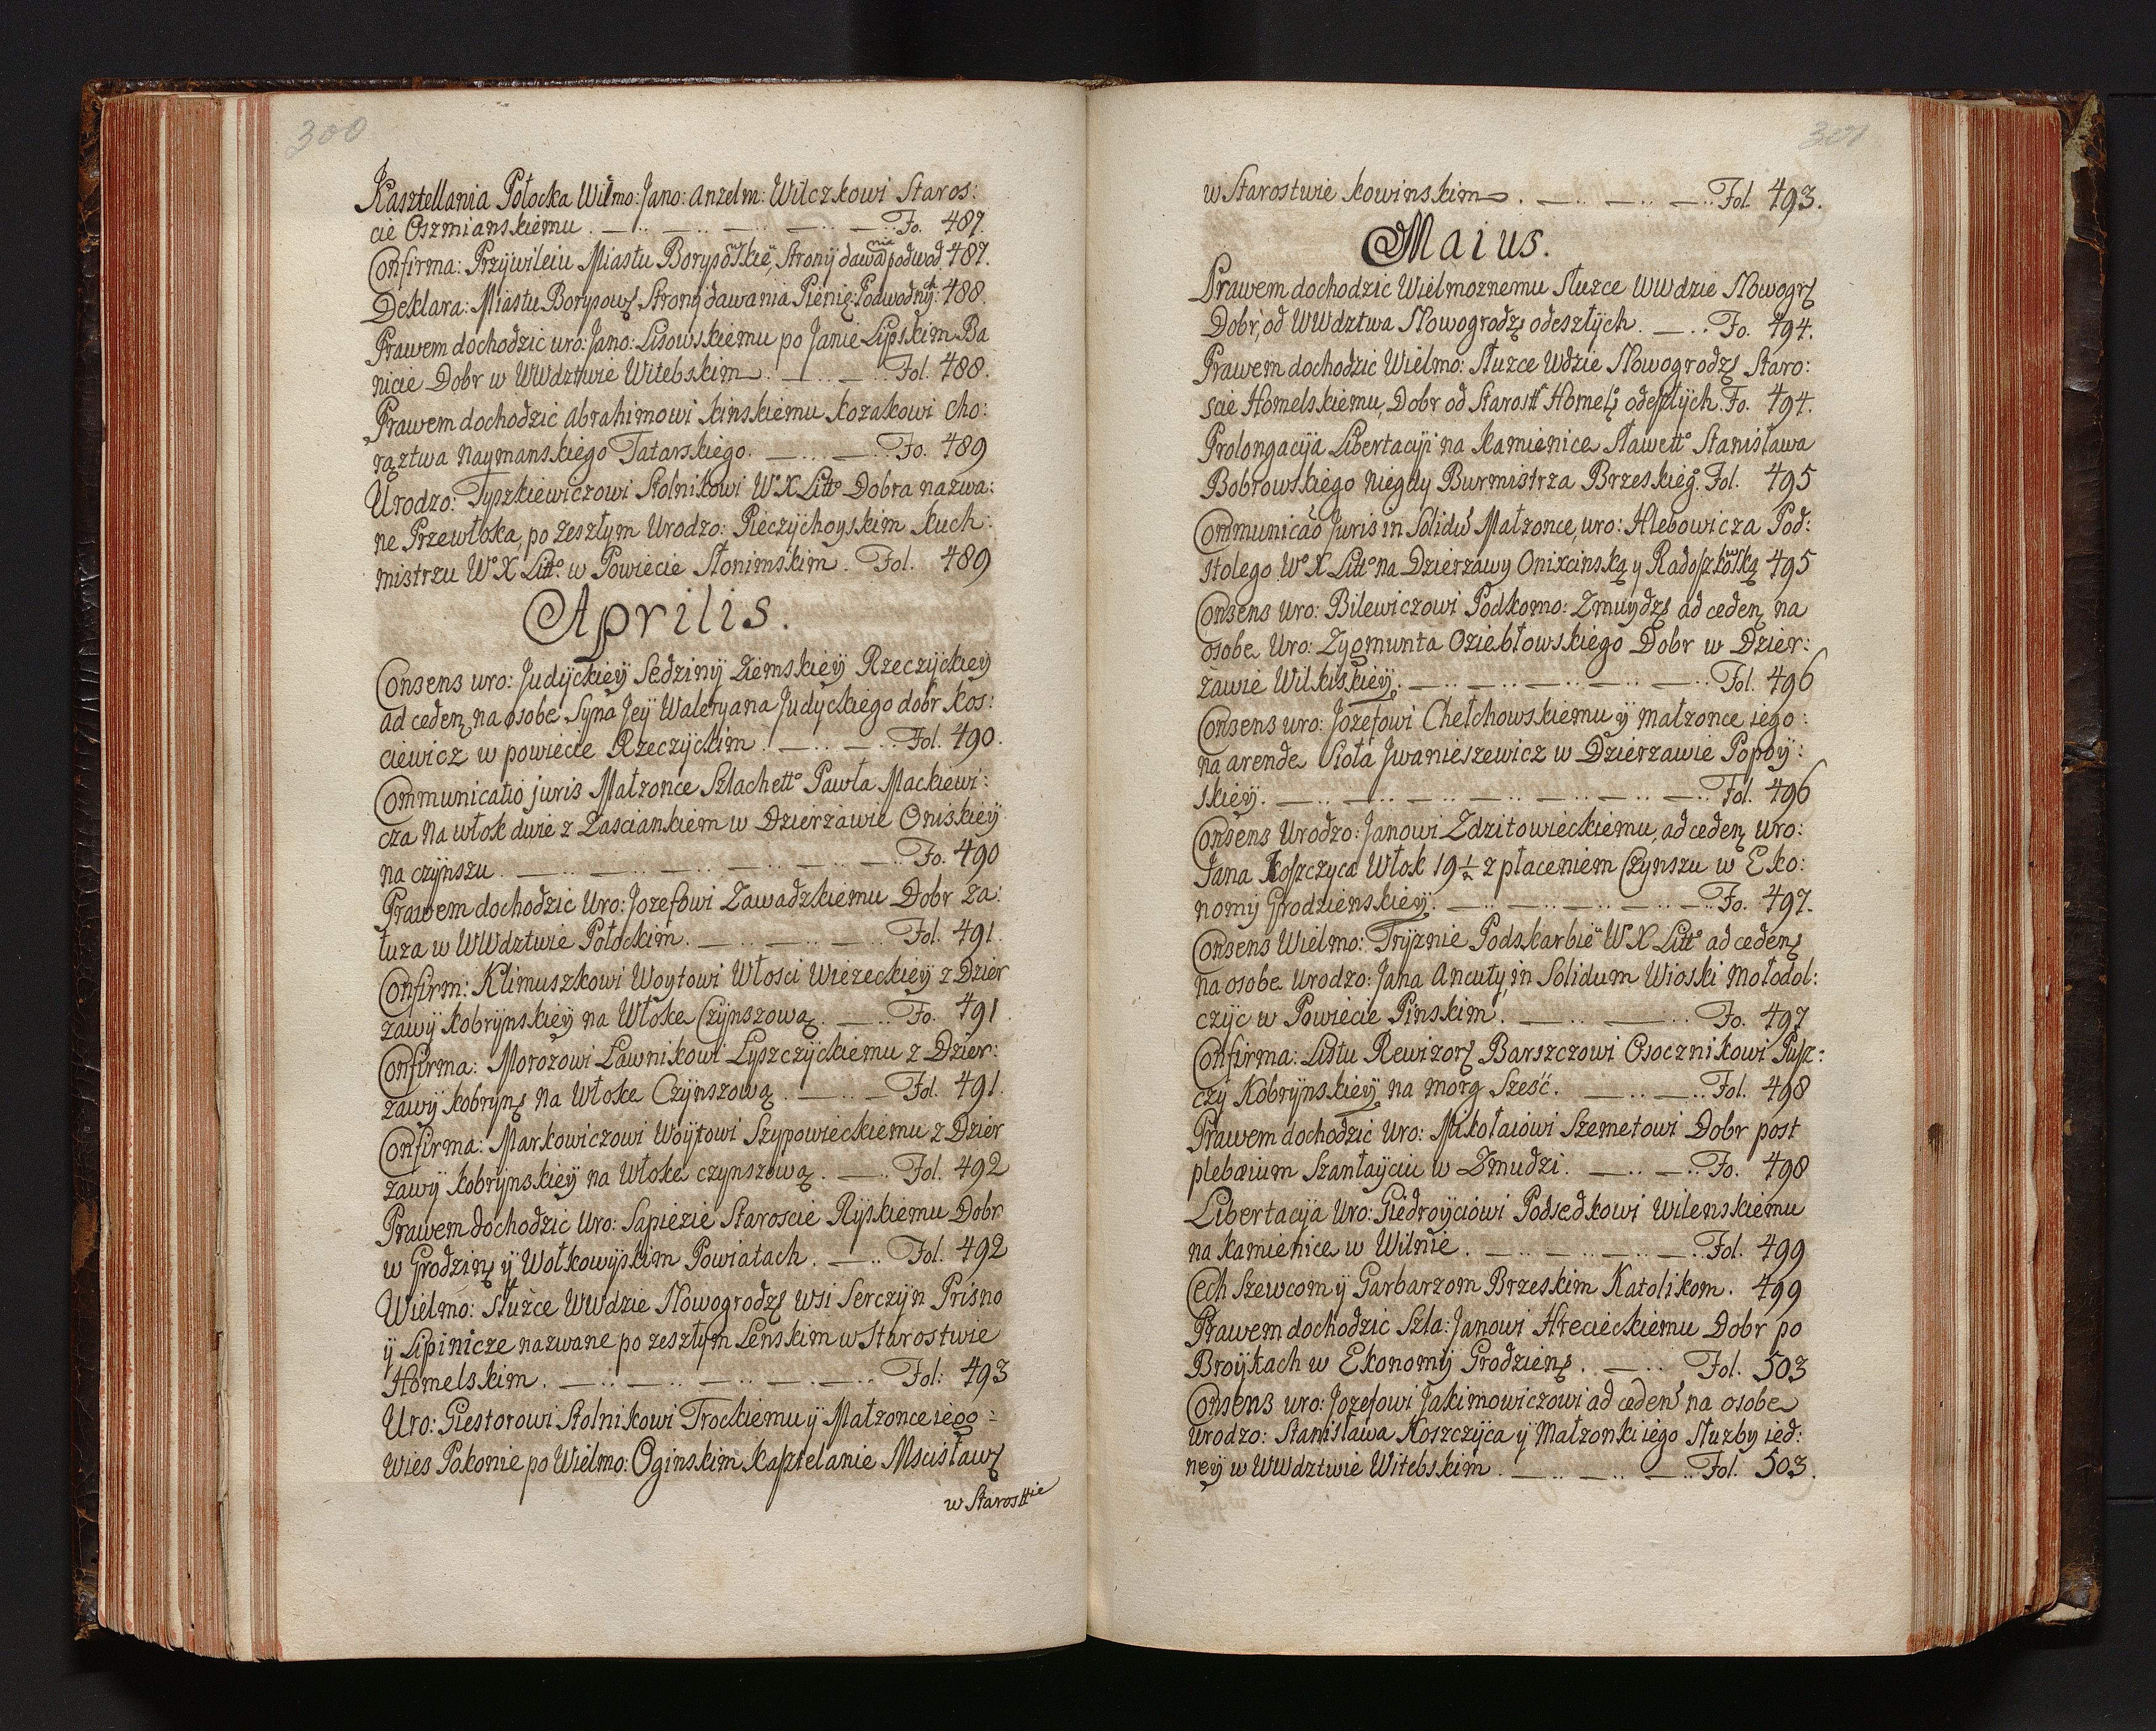 300
Kasztellania Połocka Wilmo: Jano: Anzelm: Wilczkowi Staros:
cie Oszmianskiemu . — .. — .. — .. — .. Fo. 487.
Confirma: Przywileiu Miastu Borysowskie, Strony dawania podwod. 487.
Deklara: Miastu Borysows Strony dawania Pienię: Podwodnych: 488.
Prawem dochodzic uro: Jano: Lisowskiemu po Janie Lipskim Ba
nicie Dobr w WWdztwie Witebskim . — .. — .. Fol. 488.
Prawem dochodzic Abrahimowi Kinskiemu Kozakowi Cho:
rąztwa Naymanskiego Tatarskiego. — .. — .. Fo. 489
Urodzo: Tyszkiewiczowi Stolnikowi W° X Litt° Dobra nazwa:
ne Przewłoka, po zeszłym Urodzo: Pieczychoyskim Kuch:
mistrzu W° X Litt° w Powiecie Słonimskim . Fol. 489
Aprilis.
Consens uro: Judyckiey Sedziny Ziemskiey Rzeczyckiey
ad ceden na osobe Syna Jey Waleryana Judyckiego dobr Kos:
ciewicz w powiecie Rzeczyckim . — .. — .. Fol. 490.
Communicatio juris Małzonce Szlachett° Pawła Mackiewi:
cza Na włok dwie z Zasciankiem w Dzierzawie Oniskiey
na czynszu . — .. — .. — .. — .. — .. Fo. 490
Prawem dochodzic Uro: Jozefowi Zawadzkiemu Dobr Za:
łuza w WWdztwie Połockim . — .. — .. — .. Fol. 491.
Confirm: Klimuszkowi Woytowi Włosci Wiezeckiey z Dzier
zawy Kobrynskiey na Włoke Czynszową . — .. Fo. 491.
Confirma: Morozowi Ławnikowi Łyszczyckiemu z Dzier:
zawy Kobryns na Włoke Czynszową . — .. — Fol. 491.
Confirma: Markowiczowi Woytowi Szypowieckiemu z Dzier
zawy Kobrynskiey na Włoke czynszową . — .. Fol. 492
Prawem dochodzic Uro: Sapiezie Staroscie Ryskiemu Dobr
w Grodzins y Wołkowyskim Powiatach . — .. Fol. 492
Wielmo: Słuzce WWdzie Nowogrodzs Wsi Serczyn Prisno
y Lipinicze nazwane po zeszłym Lenskim w Starostwie
Homelskim . — .. — .. — .. — .. — .. Fol: 493
Uro: Giestorowi Stolnikowi Trockiemu y Małzonce iego:
Wies Pokonie po Wielmo: Oginskim Kasztelanie Mscisławs
w Starosttie
301
w Starostwie Kowinskim . — .. — .. — .. Fol. 493.
Maius.
Prawem dochodzic Wielmoznemu Słuzce WWdzie Nowogrs
Dobr, od WWdztwa Nowogrodzs odeszłych . — .. Fo. 494.
Prawem dochodzic Wielmo: Słuzce Wdzie Nowogrodzs Staro:
scie Homelskiemu, Dobr od Starostt Homels odeszłych. Fo. 494.
Prolongacyja Libertacyi na Kamienice Sławett° Stanisława
Bobrowskiego niegdy Burmistrza Brzeskieg°. Fol. 495
Communicáo Juris in Solidu Małzonce, uro: Hlebowicza Pod:
stolego W° X Litt° na Dzierzawy Onixcinską y Radoszkowską 495
Consens Uro: Bilewiczowi Podkomo: Zmuydzs ad ceden na
osobe Uro: Zygmunta Oziebłowskiego Dobr w Dzier:
zawie Wilkiskiey. — .. — .. — .. — .. Fol. 496
Consens uro: Jozefowi Chełchowskiemu y małzonce iego:
na arende Sioła Jwanieszewicz w Dzierzawie Popoy:
skiey. — .. — .. — .. — .. — .. — .. Fol. 496
Consens Urodzo: Janowi Zdzitowieckiemu, ad ceden uro:
Jana Koszczyca Włok 19 ½ z płaceniem Czynszu w Eko:
nomij Grodzienskiey. — .. — .. — .. — .. Fo. 497.
Consens Wielmo: Tryznie Podskarbie° W X Litt° ad cedens
na osobe Urodzo: Jana Ancuty, in Solidum Wioski Mołodol:
czyc w Powiecie Pinskim . — .. — .. Fo. 497
Confirma: Listu Rewizors Barszczowi Osocznikowi Pusz:
czy Kobrynskiey na morg Szesć. — .. — .. Fol. 498
Prawem dochodzic Uro: Mikołaiowi Szemetowi Dobr post
plebæium Szantayciu w Zmudzi. — .. — .. Fo. 498
Libertacyja Uro: Giedroyciowi Podsedkowi Wilenskiemu
na kamienice w Wilnie . — .. — .. — .. Fol. 499
Cech Szewcom y Garbarzom Brzeskim Katolikom. 499
Prawem dochodzic Szla: Janowi Hrecieckiemu Dobr po
Broykach w Ekonomij Grodziens . — .. Fol. 503
Consens uro: Jozefowi Jakimowiczowi ad ceden na osobe
urodzo: Stanisława Koszczyca y Małzonki iego Słuzby ied:
ney w WWdztwie Witebskim . — .. — .. — .. Fol. 503.